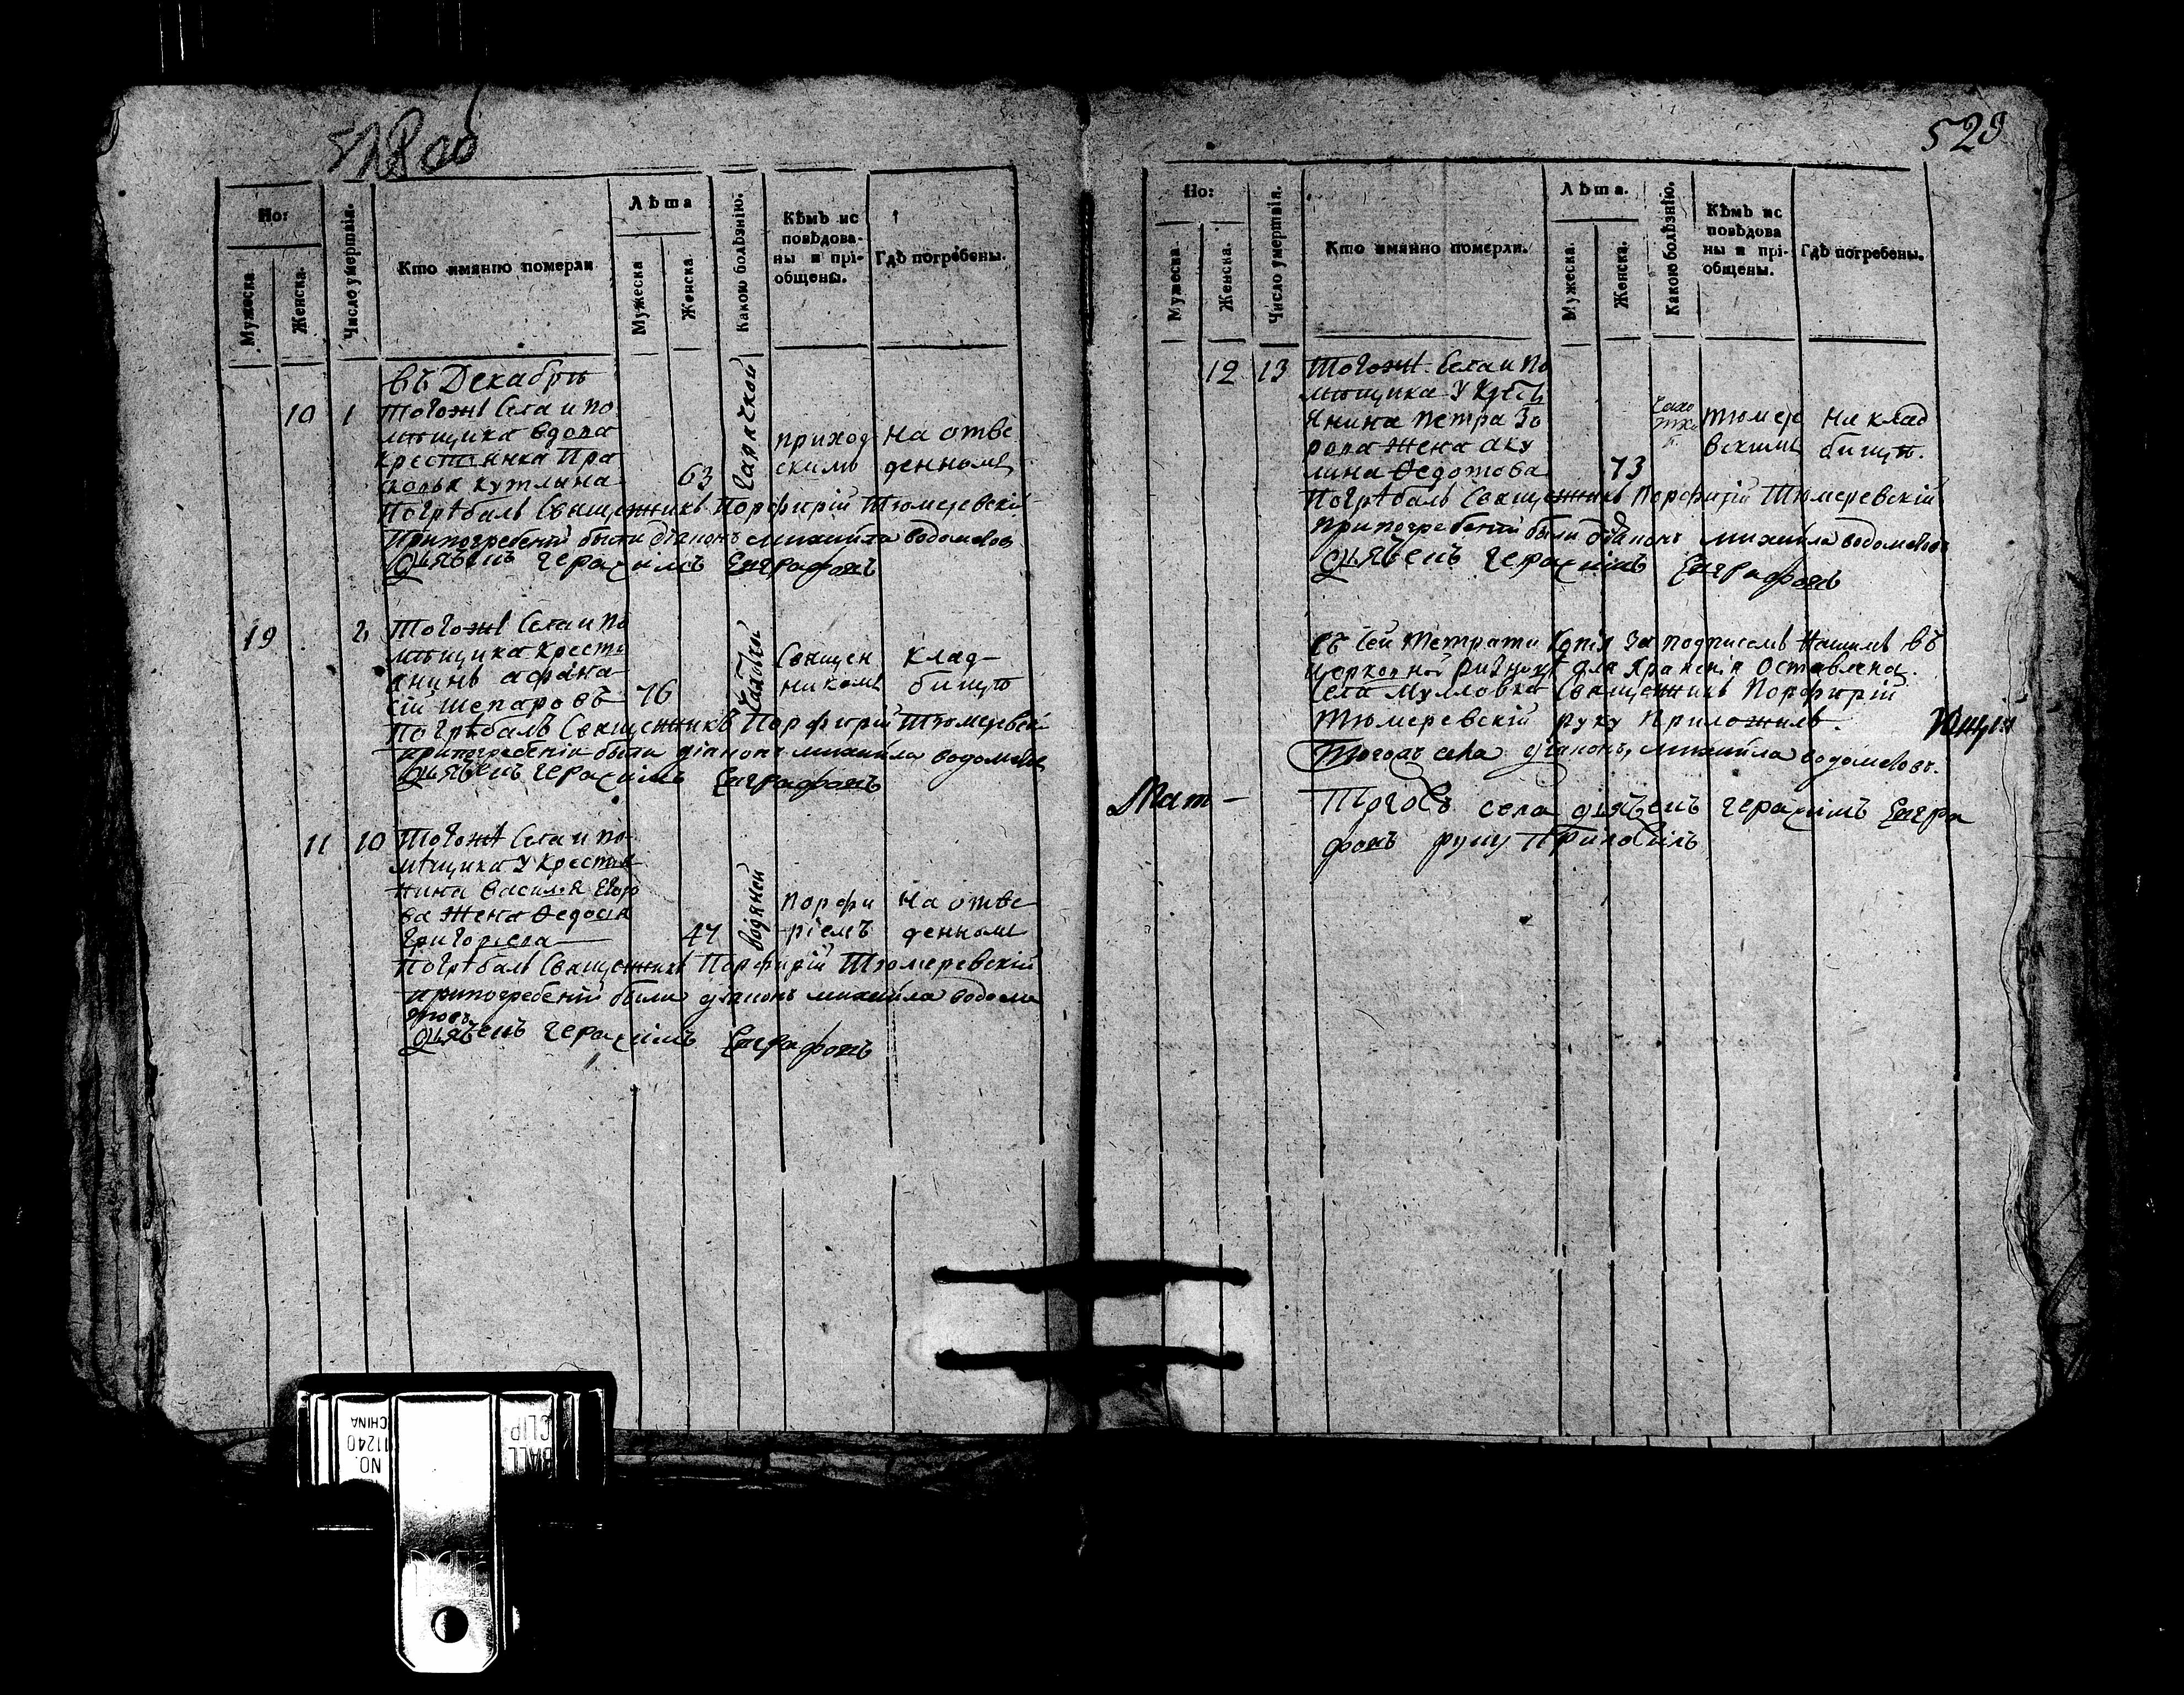 528 об
Но:
Мужеска
Женска.
Число умертвія.
Кто имянно померли
Лѣта
Мужеска
Женска.
Какою болѣзнію.
Кѣмъ ис
повѣдова-
ны и прі-
общены.
Гдѣ погребены.
въ Декабрѣ
10 1 тогожъ села и по
мѣщика вдова
крестьянка Пра
сковья кутлина
63
приход
скимъ
на отве
денномъ
Погрѣбалъ Священникъ Порфирій Тюмеревскій
Припогребеніи были діаконъ михаила водолеѣвъ
дьячекъ герасимъ Евграфовъ
19 2 тогожъ села и по
мѣщика крестья
анинъ афана
сій шепаровъ
76
Священ
никомъ
клад-
бищѣ
Погрѣбалъ Священникъ Порфирій Тюмеревскій
припогребеніи были діаконъ михаила
дьячекъ герасимъ Евграфовъ
11 10 тогожъ села и по-
мѣщика У крестья
нина Василья Егоро
ва жена Ѳедосья
григорьева
47
водяной
Порфи
ріемъ
на отве
денномъ
Погрѣбалъ Священникъ Порфирій Тюмеревскій
припогребеніи были діаконъ михаила
дьячекъ герасимъ Евграфовъ
529
Но:
Мужеска.
Женска.
Число умертвія.
Кто имянно померли.
Лѣта.
Мужеска.
Женска.
Какою болѣзнію.
Кѣмъ ис
повѣдова
ны и прі-
общены.
Гдѣ погребены.
12 13 тогожъ села и по
мѣщика У крестъ
янина Петра Зо
рова жена аку
лина Ѳедотова
73
тюмере
вскимъ
на клад
бищѣ.
Погрѣбалъ Священникъ Порфирій Тюмеревскій
припогребеніи были діаконъ михаила
дьячекъ герасимъ Евграфовъ
съ сей тетрати Копія за подписемъ Нашимъ въ
церковной ризницѣ для храненія оставлена.
Села Мулловка Священникъ Порфирій
Тюмеревскій руку приложилъ
тогожъ села діаконъ, михаила
Мат-
Тогожъ села дьячекъ герасимъ Евгра
фовъ руку приложилъ
NO.
11240
CHINA
BALL
CLIP